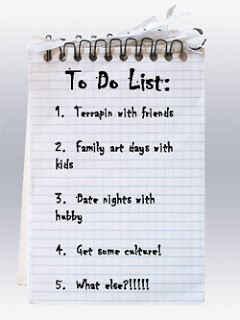 To Do List:
1. Terrapin with friends
2. Family art days with
kids
3. Date nights with
hubby
4. Get some culture!
5. What else?!!!!!